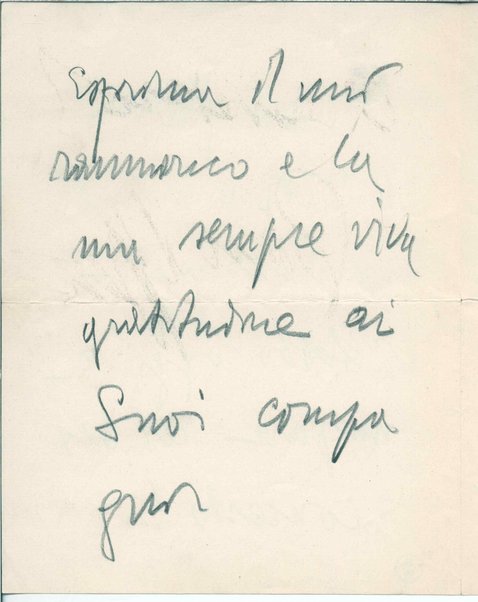 Esprima il mio
rammarico e la
mia sempre viva
gratitudine ai
Suoi compa
gni